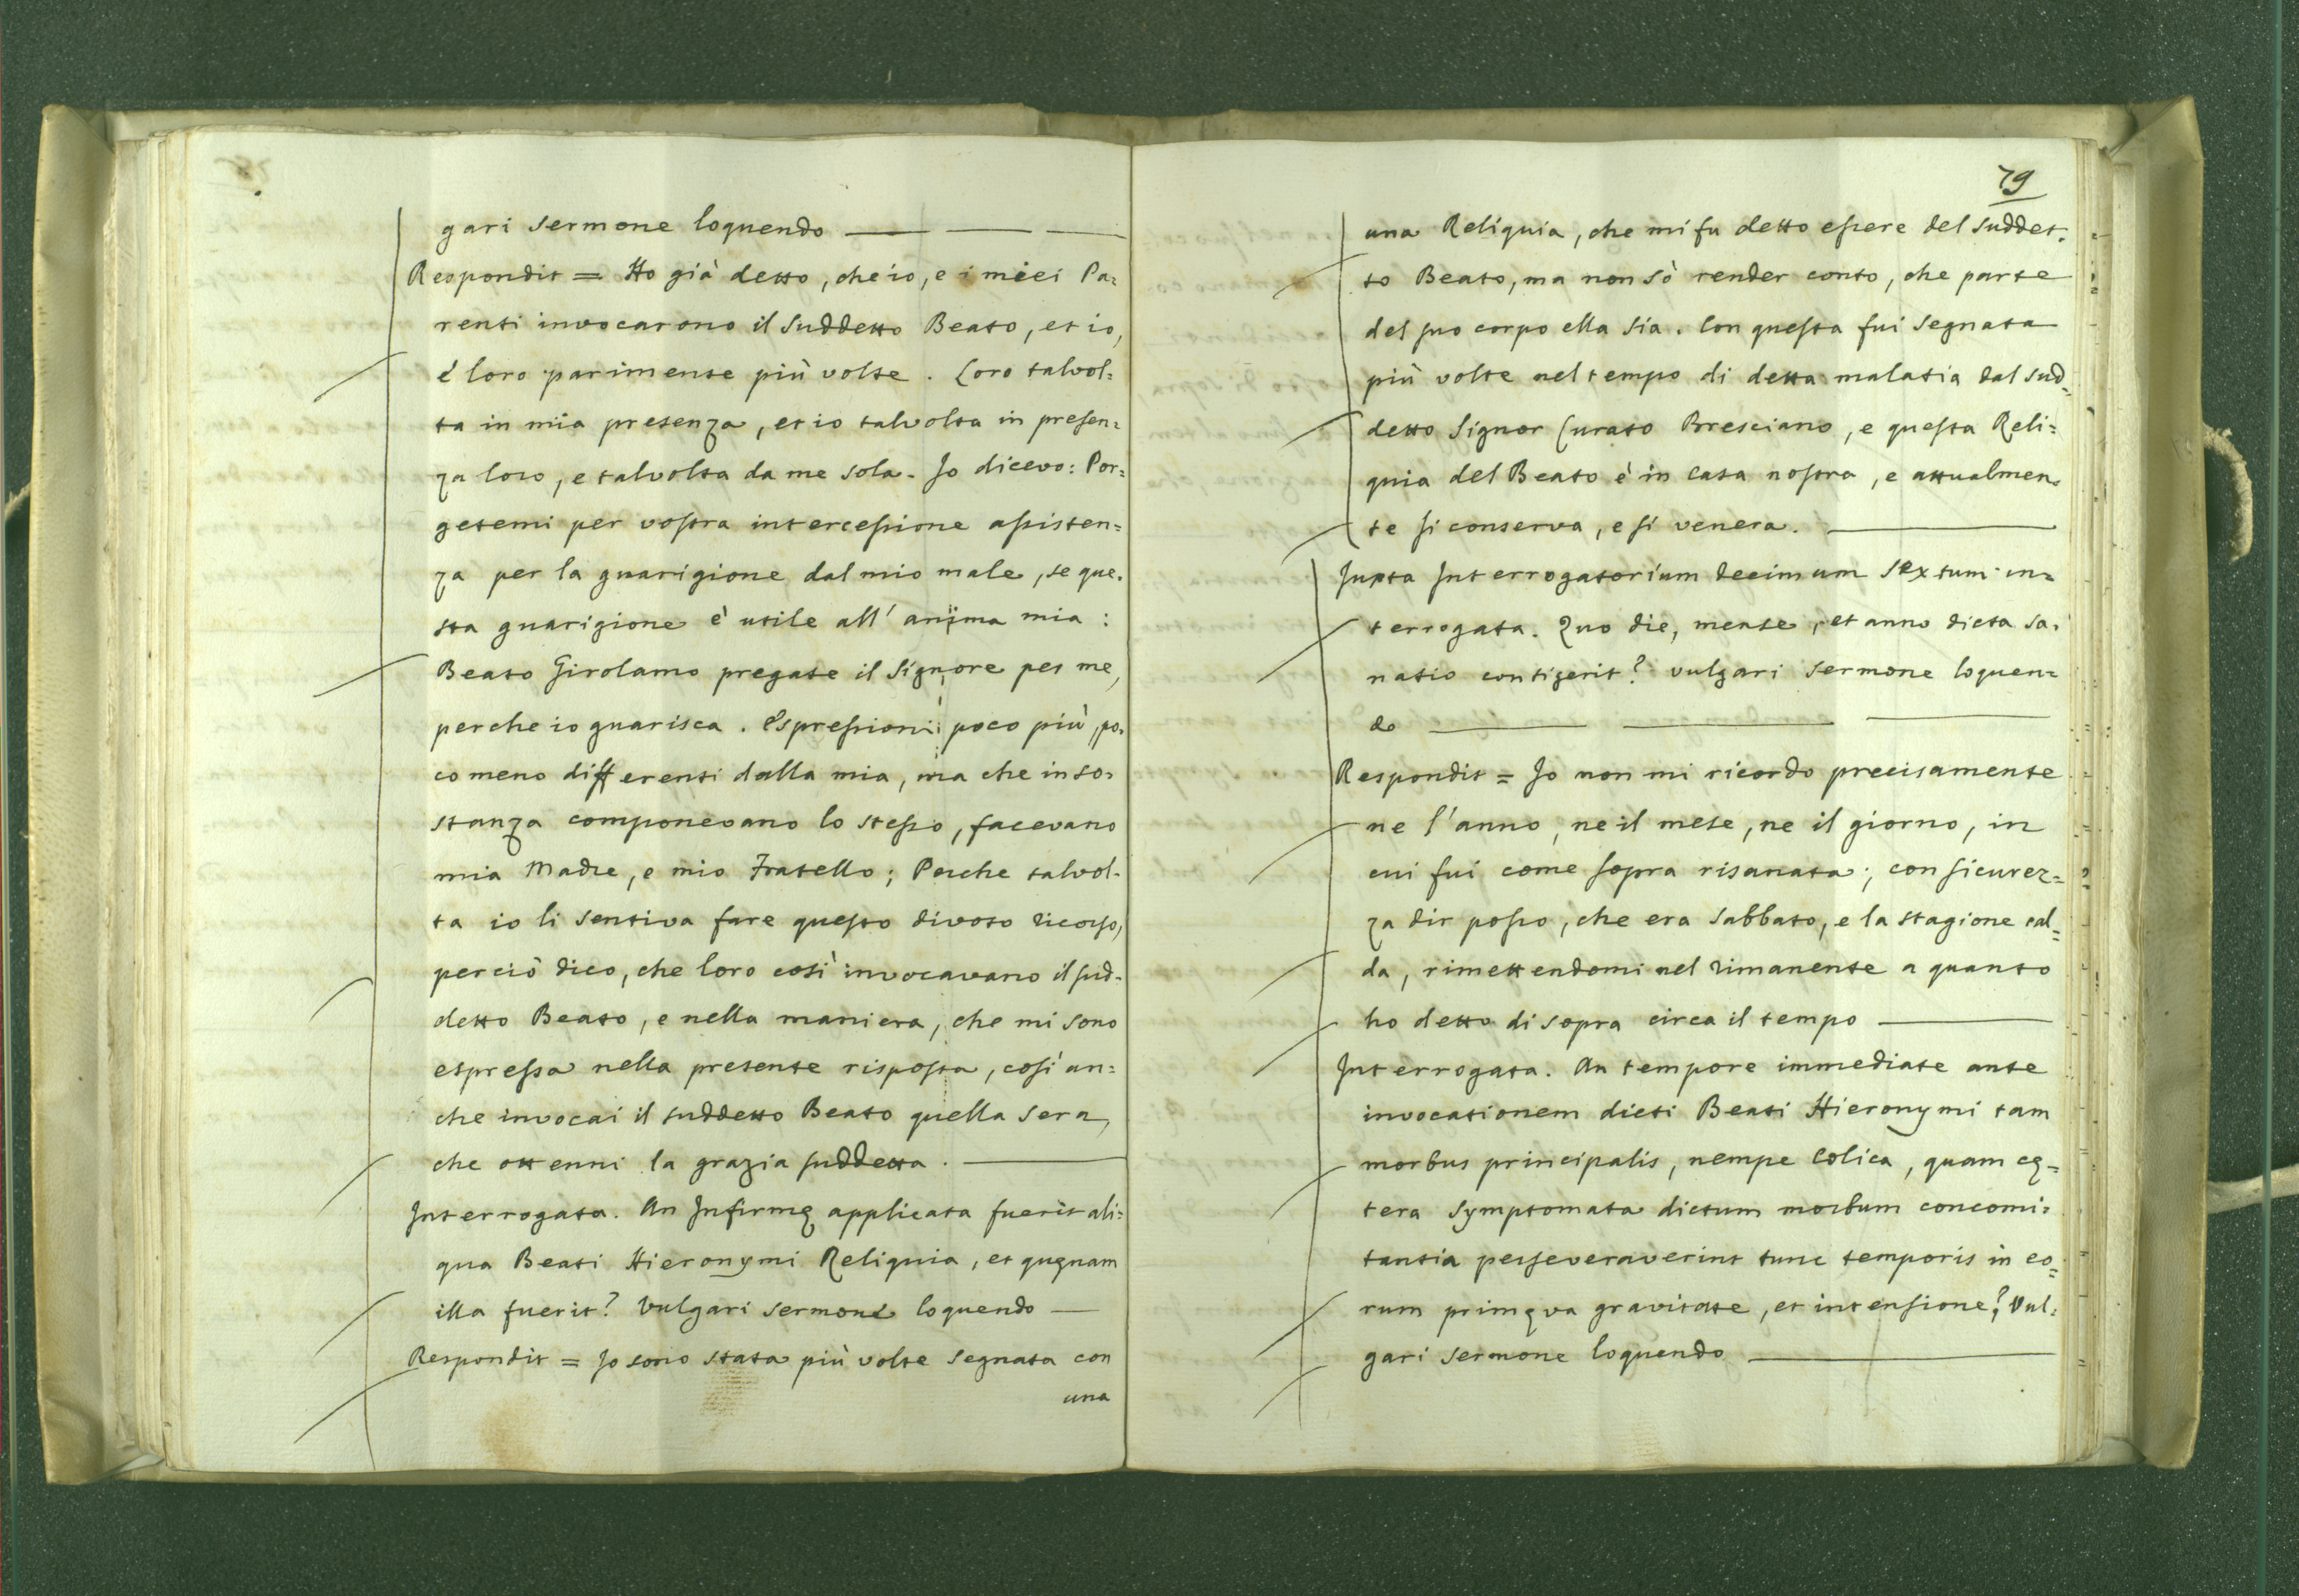 gari sermone loquendo
Respondit = Ho già detto, che io, e i miei Pa=
renti invocarono il suddetto Beato, et io,
e loro parimente più volte. Loro talvol=
ta in mia presenza, et io talvolta in presen=
za loro, e talvolta da me sola. Io dicevo: Por=
getemi per vostra intercessione assisten=
za per la guarigione dal mio male, se que=
sta guarigione è utile all' anima mia:
Beato Girolamo pregate il Signore per me,
perche io guarisca. Espressioni poco più, po=
co meno differenti dalla mia, ma che in so=
stanza componevano lo stesso, facevano
mia Madre, e mio Fratello; Perche talvol=
ta io li sentiva fare questo divoto ricorso,
perciò dico, che loro così invocavano il sud=
detto Beato, e nella maniera, che mi sono
espressa nella presente risposta, così an=
che invocai il suddetto Beato quella sera,
che ottenni la grazia suddetta.
Interrogata. An Infirmę applicata fuerit ali=
qua Beati Hieronymi Reliquia, et quęnam
illa fuerit? Vulgari sermone loquendo
Respondit = Io sono stata più volte segnata con
una
79
una Reliquia, che mi fu detto essere del suddet=
to Beato, ma non sò render conto, che parte
del suo corpo ella sia. Con questa fui segnata
più volte nel tempo di detta malatia dal sud=
detto Signor Curato Bresciano, e questa Reli=
quia del Beato è in casa nostra, e attualmen=
te si conserva, e si venera.
Juxta Interrogatorium decimum sextum in=
terrogata. Quo die, mense, et anno dicta sa=
natio contigerit? vulgari sermone loquen=
do
Respondit = Io non mi ricordo precisamente
ne l'anno, ne il mese, ne il giorno, in
cui fui come sopra risanata; con sicurez=
za dir posso, che era sabbato, e la stagione cal=
da, rimettendomi nel rimanente a quanto
ho detto di sopra circa il tempo
Interrogata. An tempore immediate ante
invocationem dicti Beati Hieronymi tam
morbus principalis, nempe Colica, quam cę=
tera symptomata dictum morbum concomi=
tantia perseveraverint tunc temporis in eo=
rum primęva gravitate, et intensione? Vul=
gari sermone loquendo